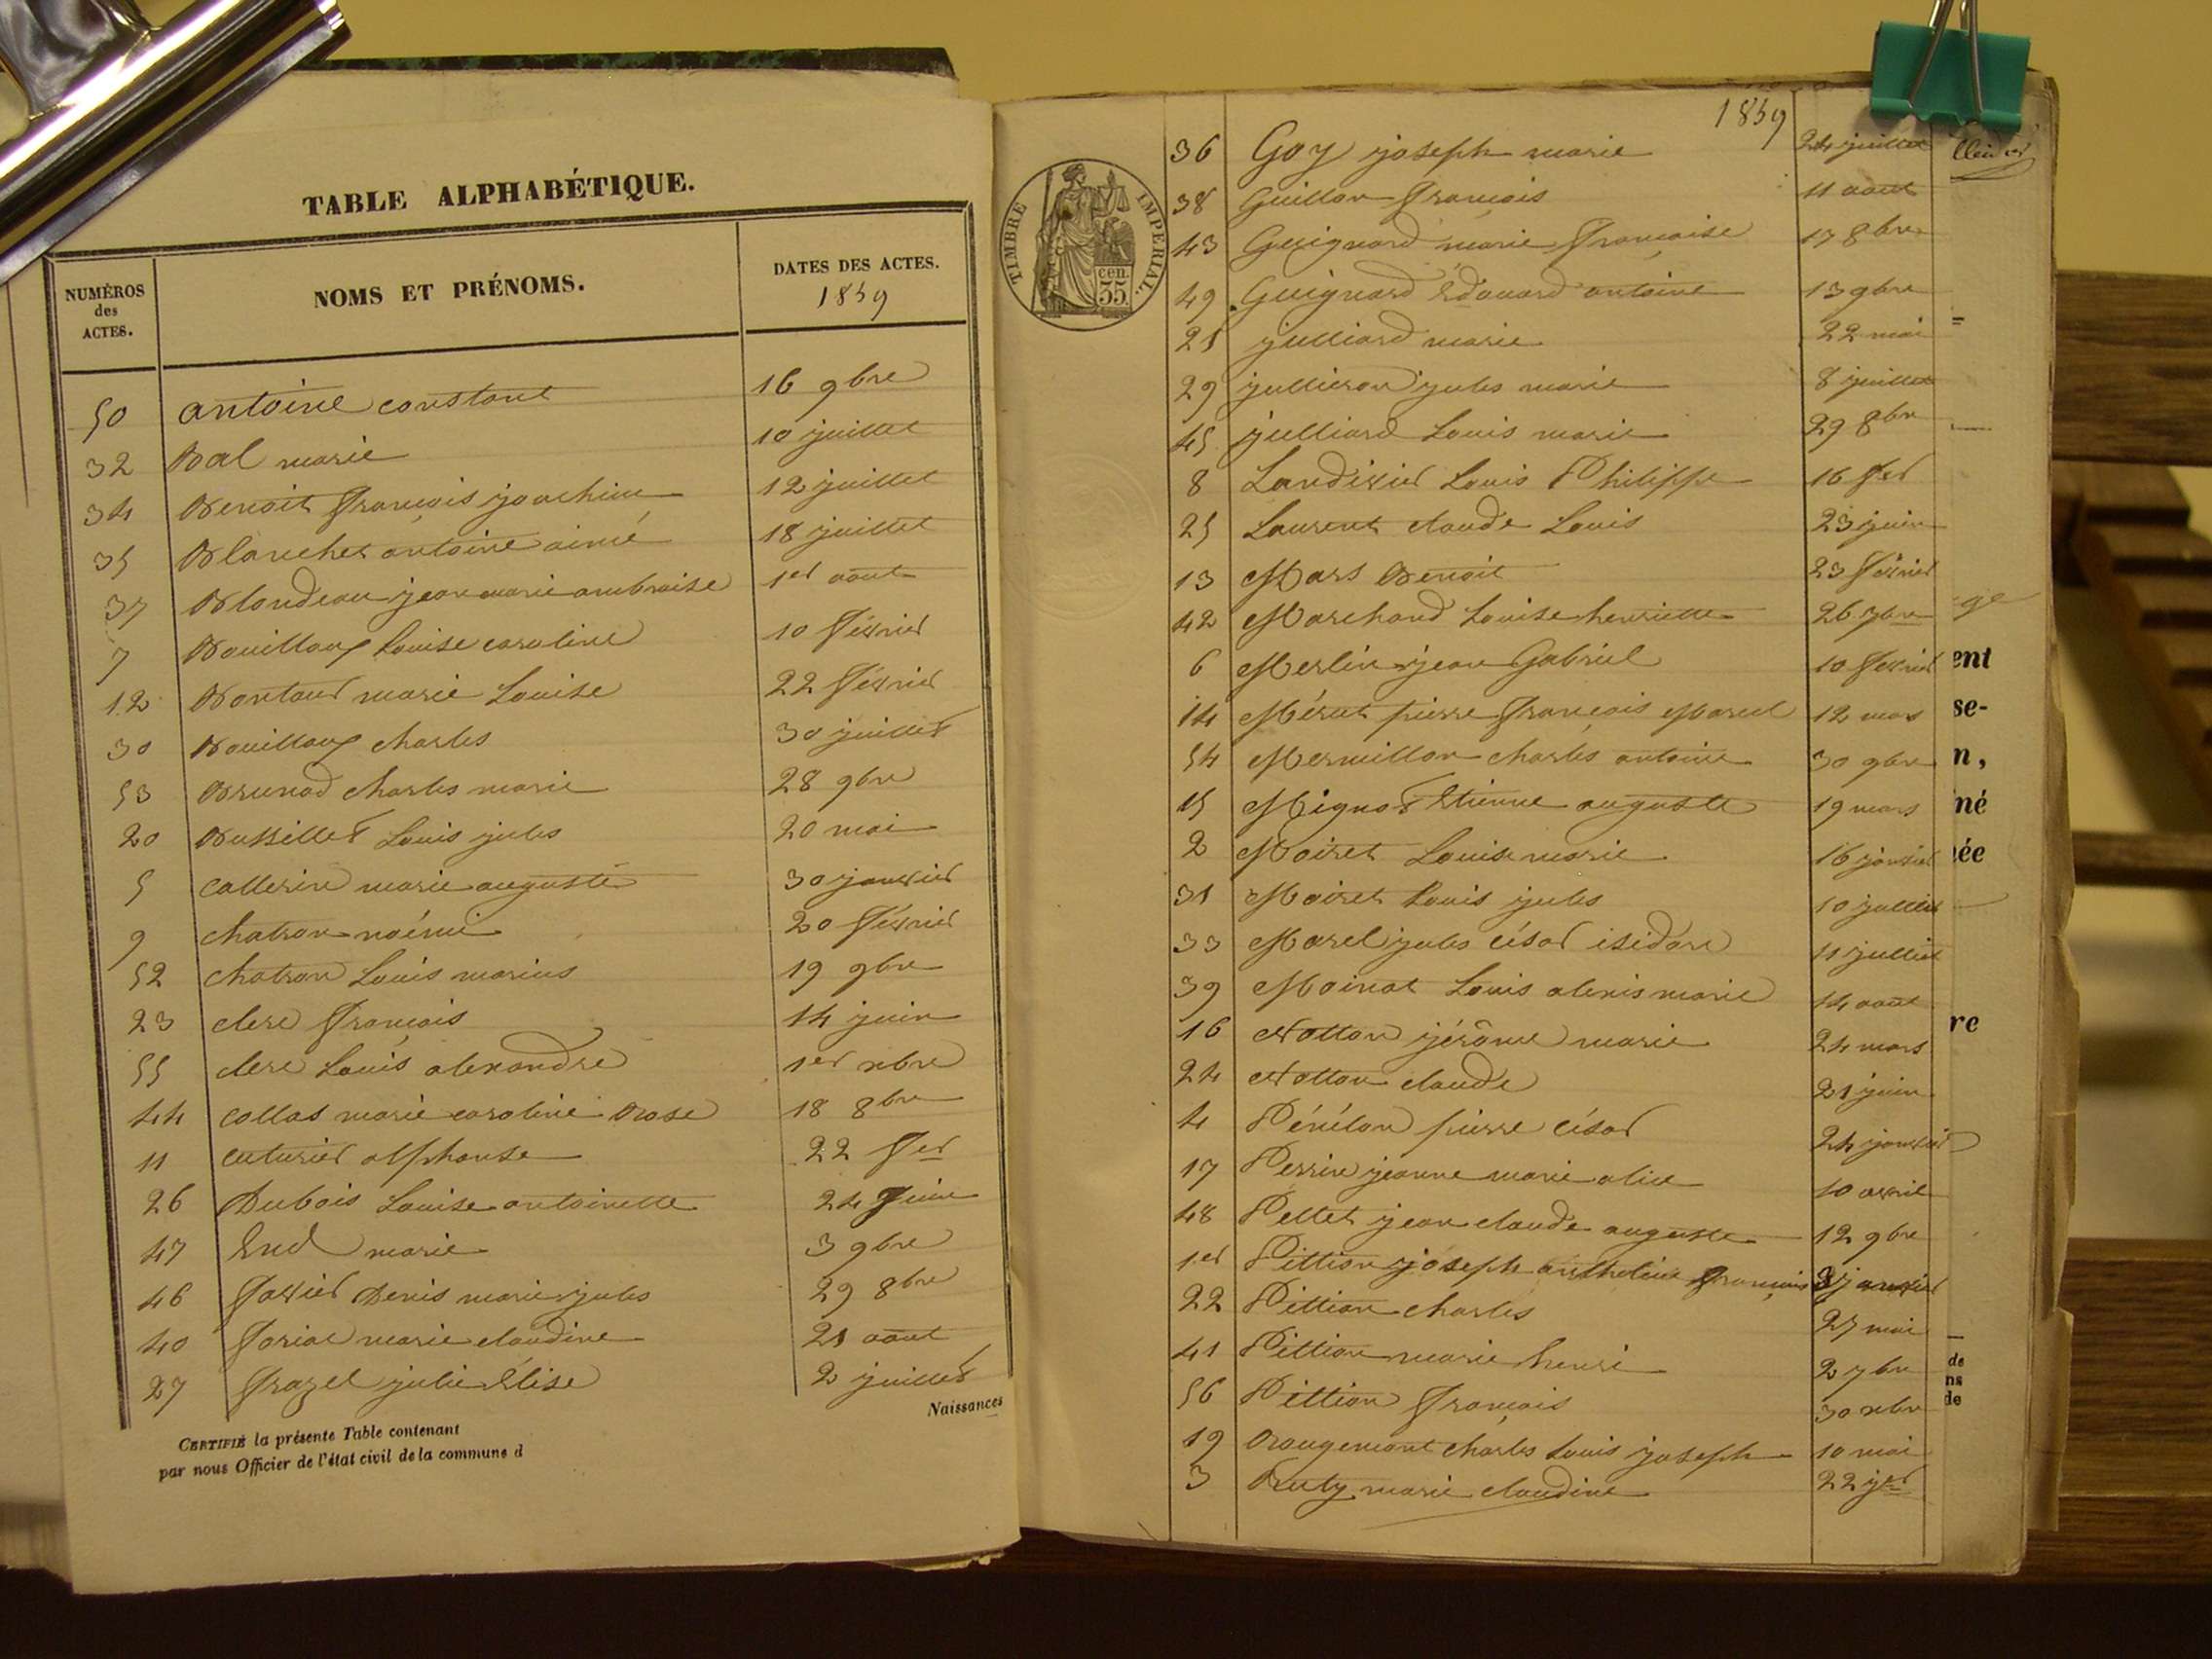 TABLE ALPHABÉTIQUE.
NUMÉROS des ACTES.
NOMS ET PRÉNOMS.
DATES DES ACTES.
1859
50 antoine constant 16 9bre
32 Bal marie 10 juillet
34 Benoit François joachim 12 juillet
35 Blanchet antoine aimé 18 juillet
37 Blondeau jean marie ambroise 1er aout
7 Bouilloux Louise caroline 10 Février
12 marie Louise 22 Février
30 Bouilloux charles 30 juillet
53 Brunod charles marie 28 9bre
20 Bussillet Louis jules 20 mai
5 Callerin marie auguste 30 janvier
9 chatron noémie 20 Février
52 chatron Louis marius 19 9bre
23 clerc François 14 juin
55 clerc Louis alexandre 1er xbre
44 collas marie caroline Rose 18 8bre
11 cuturier alphonse 22 Fer
26 Dubois Louise antoinette 24 Juin
47 marie 3 9bre
46 Favier Denis marie jules 29 8bre
40 marie claudine 21 aout
27 Frazel julie Elise 2 juillet
Naissances
CERTIFIÉ la présente Table contenant
par nous Officier de l'état civil de la commune d
1859
TIMBRE IMPERIAL.
35 cen.
36 Goy joseph marie 24 juillet
38 Guillon François 11 aout
43 Guignard marie Françoise 17 8bre
49 Guignard Edouard antoine 13 9bre
21 julliard marie 22 mai
29 jullieron jules marie 8 juillet
45 julliard Louis marie 29 8bre
8 Landivier Louis Philippe 16 Fer
25 Laurent claude Louis 23 juin
13 Mars Benoit 23 Février
42 Marchand Louise henriette 26 7bre
6 Merlin jean Gabriel 10 Février
14 Mérut pierre François Marcel 12 mars
54 Mermillon charles antoine 30 9bre
15 Mignot Etienne auguste 19 mars
2 Moiret Louise marie 16 janvier
31 Moiret Louis jules 10 juillet
33 Morel jules césar isidore 11 juillet
39 Moinat Louis alexis marie 14 aout
16 Notton jérôme marie 24 mars
24 Notton claude 21 juin
4 Pénélon pierre césar 24 janvier
17 Perrin jeanne marie alice 10 avril
48 Pettet jean claude auguste 12 9bre
1er Pittion joseph anthelme François 3 janvier
22 Pittion charles 27 mai
41 Pittion marie henri 2 7bre
56 Pittion François 30 xbre
19 Rougemont charles Louis joseph 10 mai
3 Ruty marie claudine 22 jer
ent
se-
n,
né
ée
re
de
ns
de